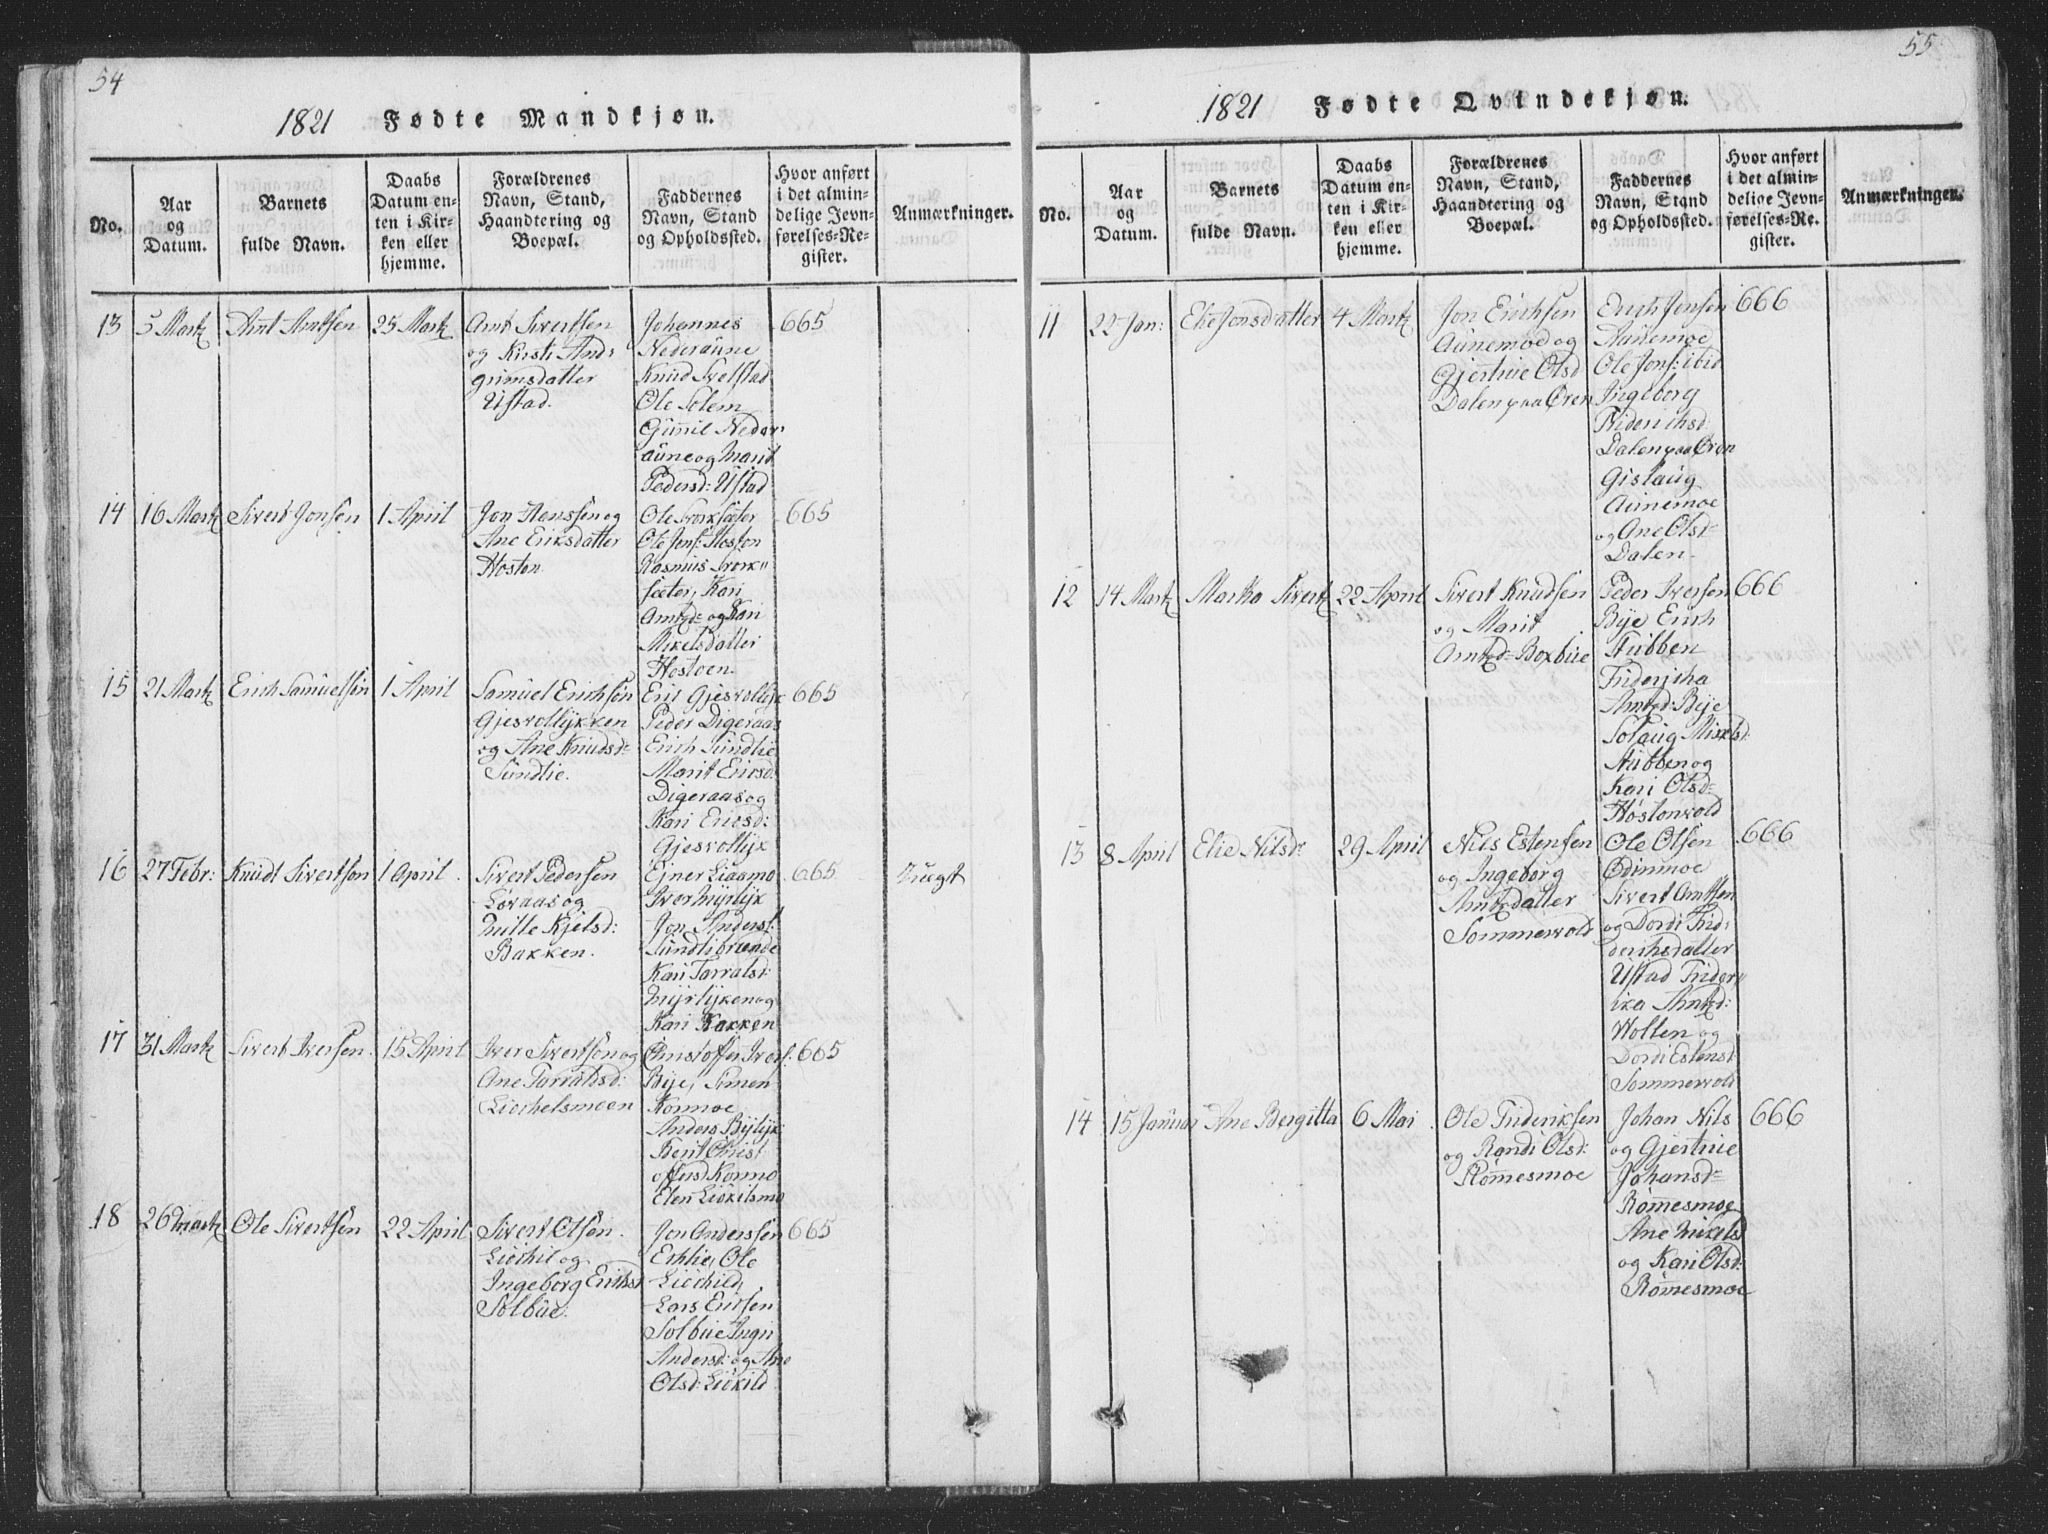 54
1821 Fødte Mandkjøn.
No.
Aar
og
Datum.
Barnets
fulde Navn.
Daabs
Datum en-
ten i Kir-
ken eller
hjemme.
Forældrenes
Navn, Stand,
Haandtering og
Boepæl.
Faddernes
Navn, Stand
og Opholdssted.
Hvor anført
i det almin-
delige Jevn-
førelses-Re-
gister.
Anmærkninger.
13
5 Martz
Arnt Arntsen
25 Martz
Arnt Sivertsen
og Kirsti And-
grimsdatter
Ustad.
Johannes
Nederaune
Knud Svelstad
Ole Solem
Gunnil Neder-
aune og Marit
Pedersd: Ustad
665
14
16 Martz
Sivert Jonsen
1 April
Jon Hanssen og
Ane Eriksdatter
Hoston
Ole Svorksæter
Ole Jons: Hoston
Rasmus Svork-
sæter, Kari
Arntzd: og Kari
Mikelsdatter
Hostoen.
665
15
21 Martz
Erich Samuelsøn
1 April
Samuel Erichsøn
Gjesvollykken
og Ane Knudsd:
Sundlie.
Eric Gjesvollyk
Peder Digeraas
Erich Sundlie
Marit Ericsd:
Digeraas og
Kari Ericsd:
Gjesvollyk
665
16
27 Febr:
Knudt Sivertsøn
1 April
Sivert Pedersen
Løraas og
Mille Kjelsd:
Bakken.
Ejner Liaamo
Iver Myrlyk
Jon Anders:
Sundlibrænde
Kari Tarralsd:
Myrlyken og
Kari Bakken
665
17
31 Martz
Sivert Iversen.
15 April
Iver Sivertsøn og
Ane Tarralsd:
Liechelsmoen
Christoffer Ivers:
Bye, Simen
Konmoe
Anders Bylyk
Berit Christ
offersd Konmo
Elen Liøkilsmo
665
18
26 Martz
Ole Sivertsøn
22 April
Sivert Olsøn
Liøchil og
Ingeborg Erichsd
Solbue.
Jon Anderssen
Echlie, Ole
Liøchild,
Lars Ericsen
Solbue Ingri
Andersd: og Ane
Olsd: Liøkild
665
55
1821 Fødte Qvindekjøn.
No.
Aar
og
Datum.
Barnets
fulde Navn.
Daabs
Datum en-
ten i Kir-
ken eller
hjemme.
Forældrenes
Navn, Stand,
Haandtering og
Boepæl.
Faddernes
Navn, Stand
og Opholdssted.
Hvor anført
i det almin-
delige Jevn-
førelses-Re-
gister.
Anmærkninger.
11
22 Jan:
Elie Jonsdatter
4 Martz
Jon Erichsen
Aunemoe og
Gjertrue Olsd
Dalen paa Øren
Erich Jonsen
Aunemoe
Ole Jons: ibid
Ingeborg
Friderichsd:
Dalen paa Øren
Gislaug
Aunemoe
og Ane Olsd:
Dalen.
666
12
14 Martz
22 April
Sivert Knudsen
og Marit
Arntzd: Boxbue
Peder Iversen
Bye Erich
Stubben
Fridericha
Arntzd: Bye
Solaug Mikelsd
Stubben og
Kari Olsd:
Høstonvold
666
13
8 April
Elie Nilsd:
29 April
Nils Estensen
og Ingeborg
Arntzdatter
Sommervold
Ole Olsen
Odinmoe
Sivert Arntsen
og Dordi Frid-
derichsdatter
Ustad Frider-
ika Arntzd:
Wollen og
Dordi Estensd:
Sommervold
666
14
15 Januar
Ane Bergitta
6 Mai
Ole Frideriksen
og Randi Olsd:
Rømmesmoe
Johan Nils
og Gjertrue
Johansd:
Rømmesmoe
Ane Mikelsd
og Kari Olsd:
Rømmesmoe
666